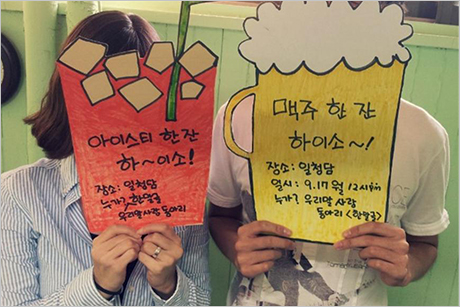 아이스티 한잔
하~이소!
장소: 일청담
누가? 한말글
우리말사랑 동아리
맥주 한 잔
하이소~!
장소: 일청담
일시: 9.17 월 12시반
누가? 우리말 사랑
동아리 <한말글>